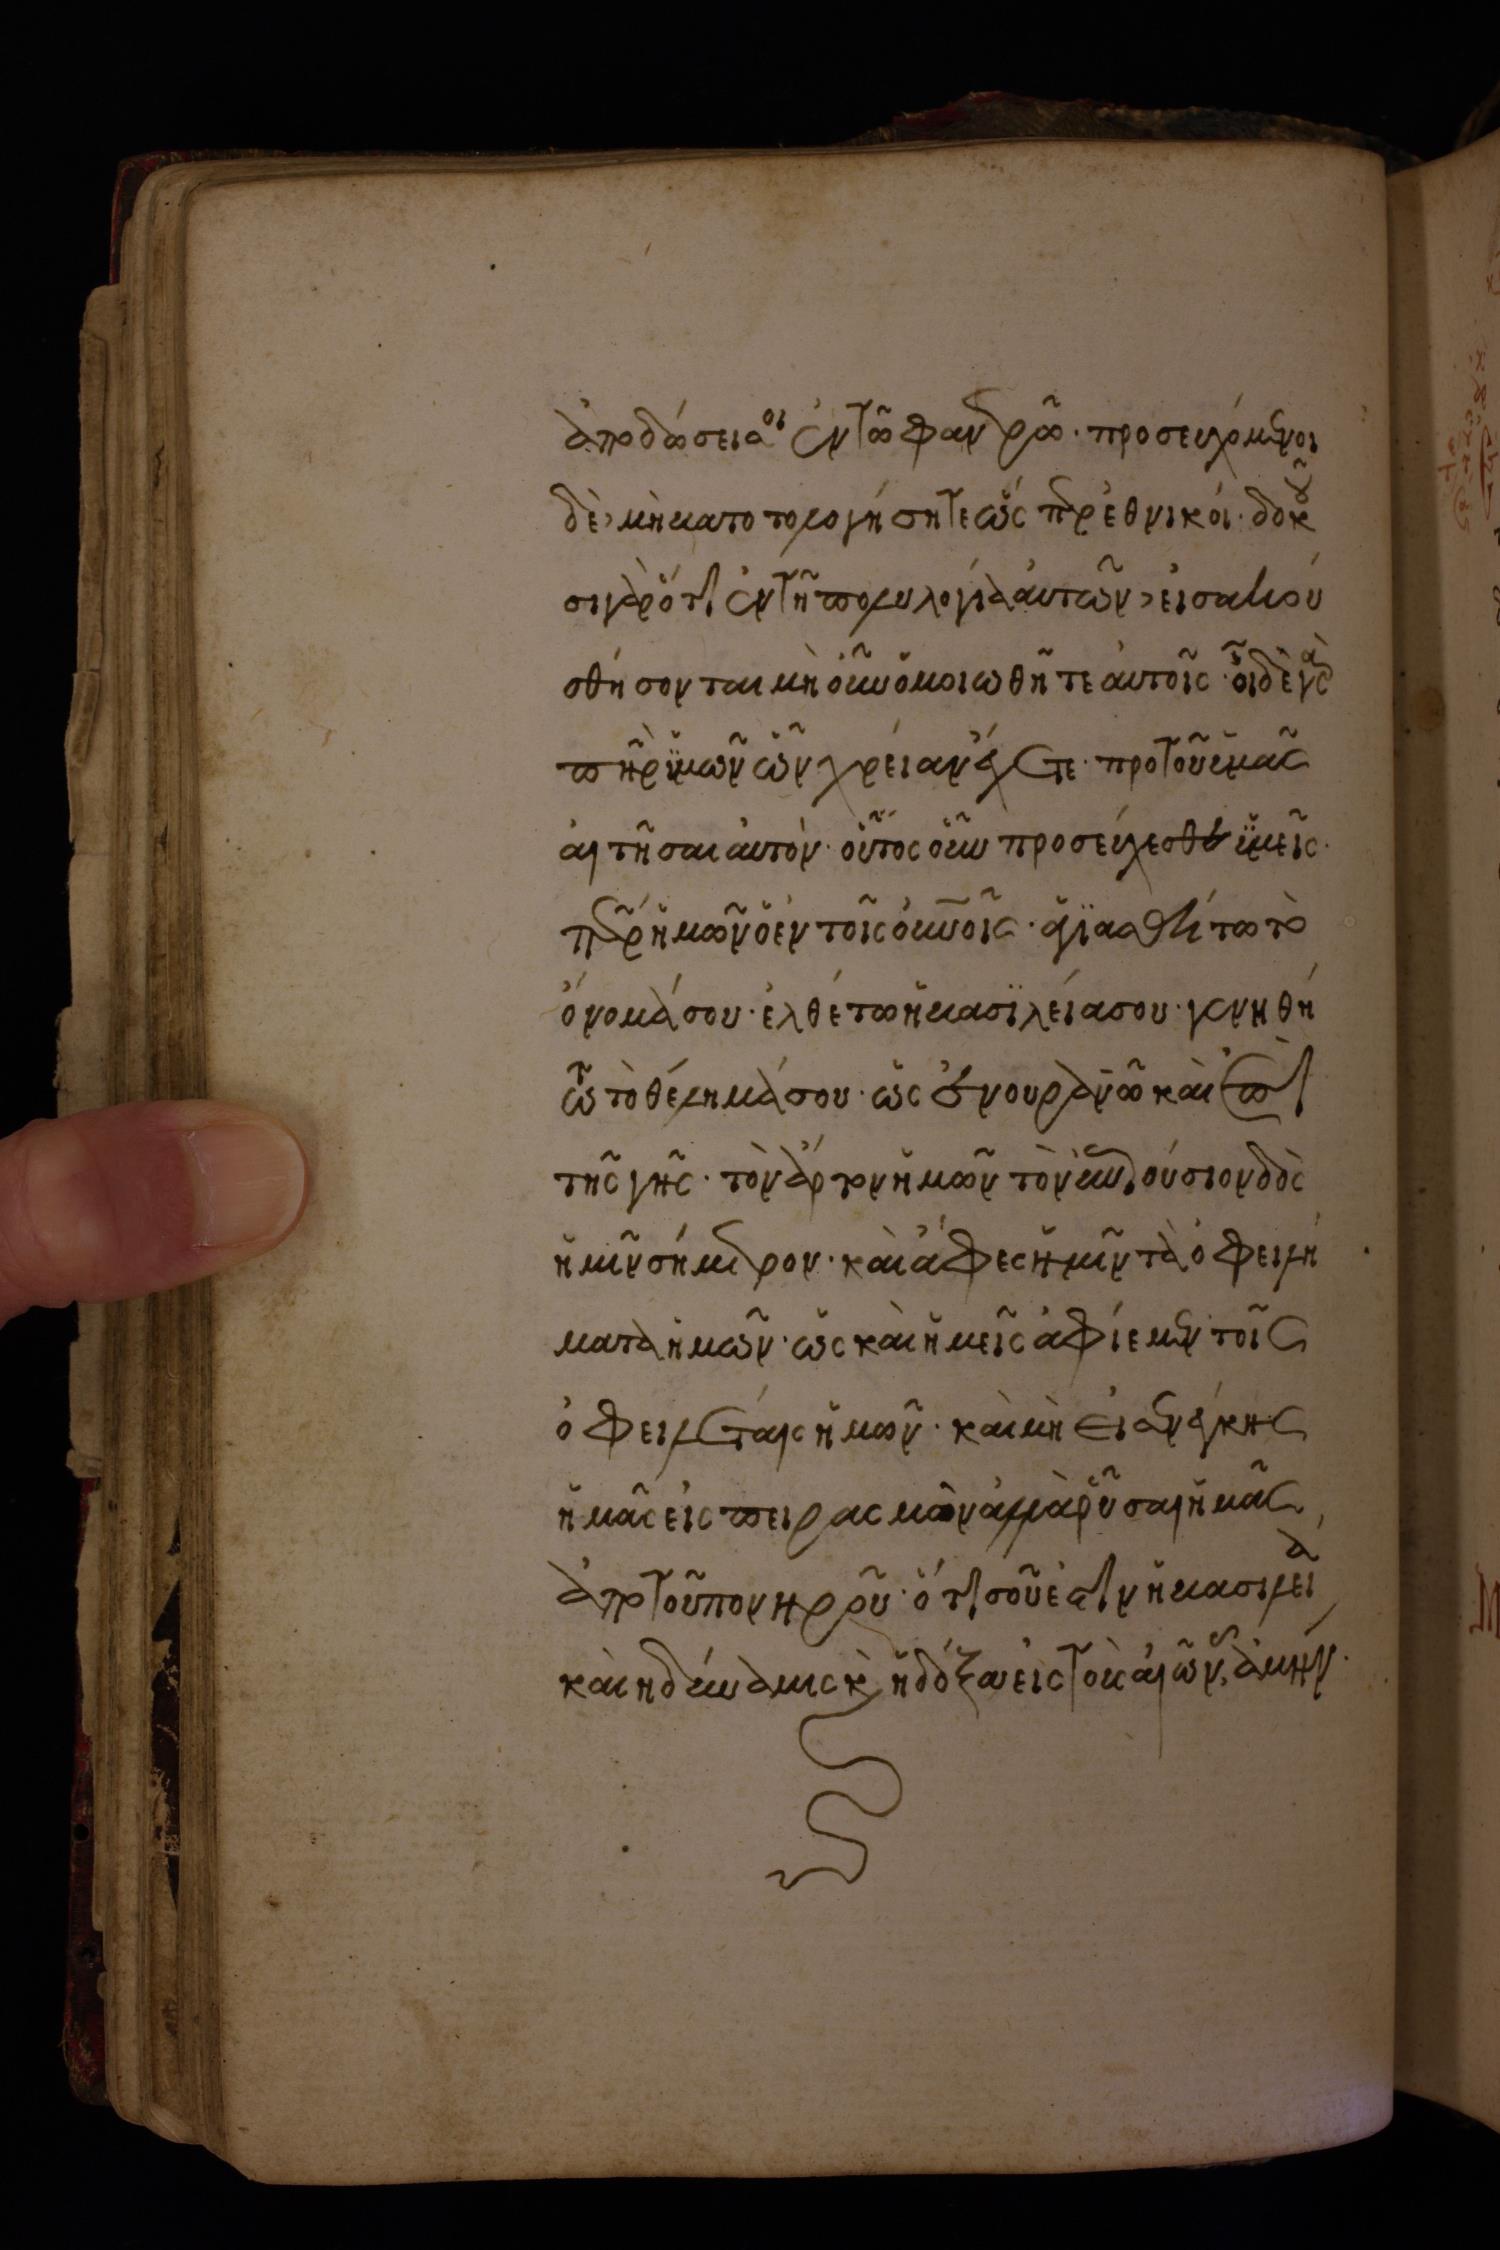 ἀποδώσει σοι ἐν τῶ φανερῶ· προσευχόμενοι
δὲ, μὴ βαττολογήσητε ὥσπερ ἐθνικόι· δοκοῦ
σι γὰρ ὅτι ἐν τῆ πολυλογία ἀυτῶν, εἰσακού
σθήσονται μὴ οὖν ὁμοιωθῆτε ἀυτοῖς· οἶδε γὰρ
ὁ πῆρ ὑμῶν ὧν χρείαν ἔχετε· προτοῦ ὑμᾶς
ἀιτῆσαι ἀυτόν· οὕτος οὖν προσεύχεσθε ὑμεῖς·
περ ἡμῶν ὁ ἐν τοῖς ὀυνοῖς· ἁγιασθήτω τὸ
ὄνομά σου· ἐλθέτω ἡ βασιλεία σου· γενηθή
τω τὸ θέλημά σου· ὡς ἐν ουρανῶ καὶ ἐπὶ
τῆς γῆς· τὸν ἄρτον ἡμῶν τὸν ἐπιούσιον δὸς
ἡμῖν σήμερον· καὶ ἄφες ἡμῖν τὰ ὀφειλή
ματα ἡμῶν· ὡς καὶ ἡμεῖς ἀφίεμεν τοῖς
ὀφειλέταις ἡμῶν· καὶ μὴ εἰσενέγκης
ἡμᾶς εἰς πειρασμὸν ἀλλὰ ῥῦσαι ἡμᾶς
ἀπὸ τοῦ πονηροῦ· ὅτι σοῦ ἐστιν ἡ βασιλεία
καὶ η δύναμις κ ἡ δόξα εἰς τοὺς ἀιῶνας, ἀμήν·